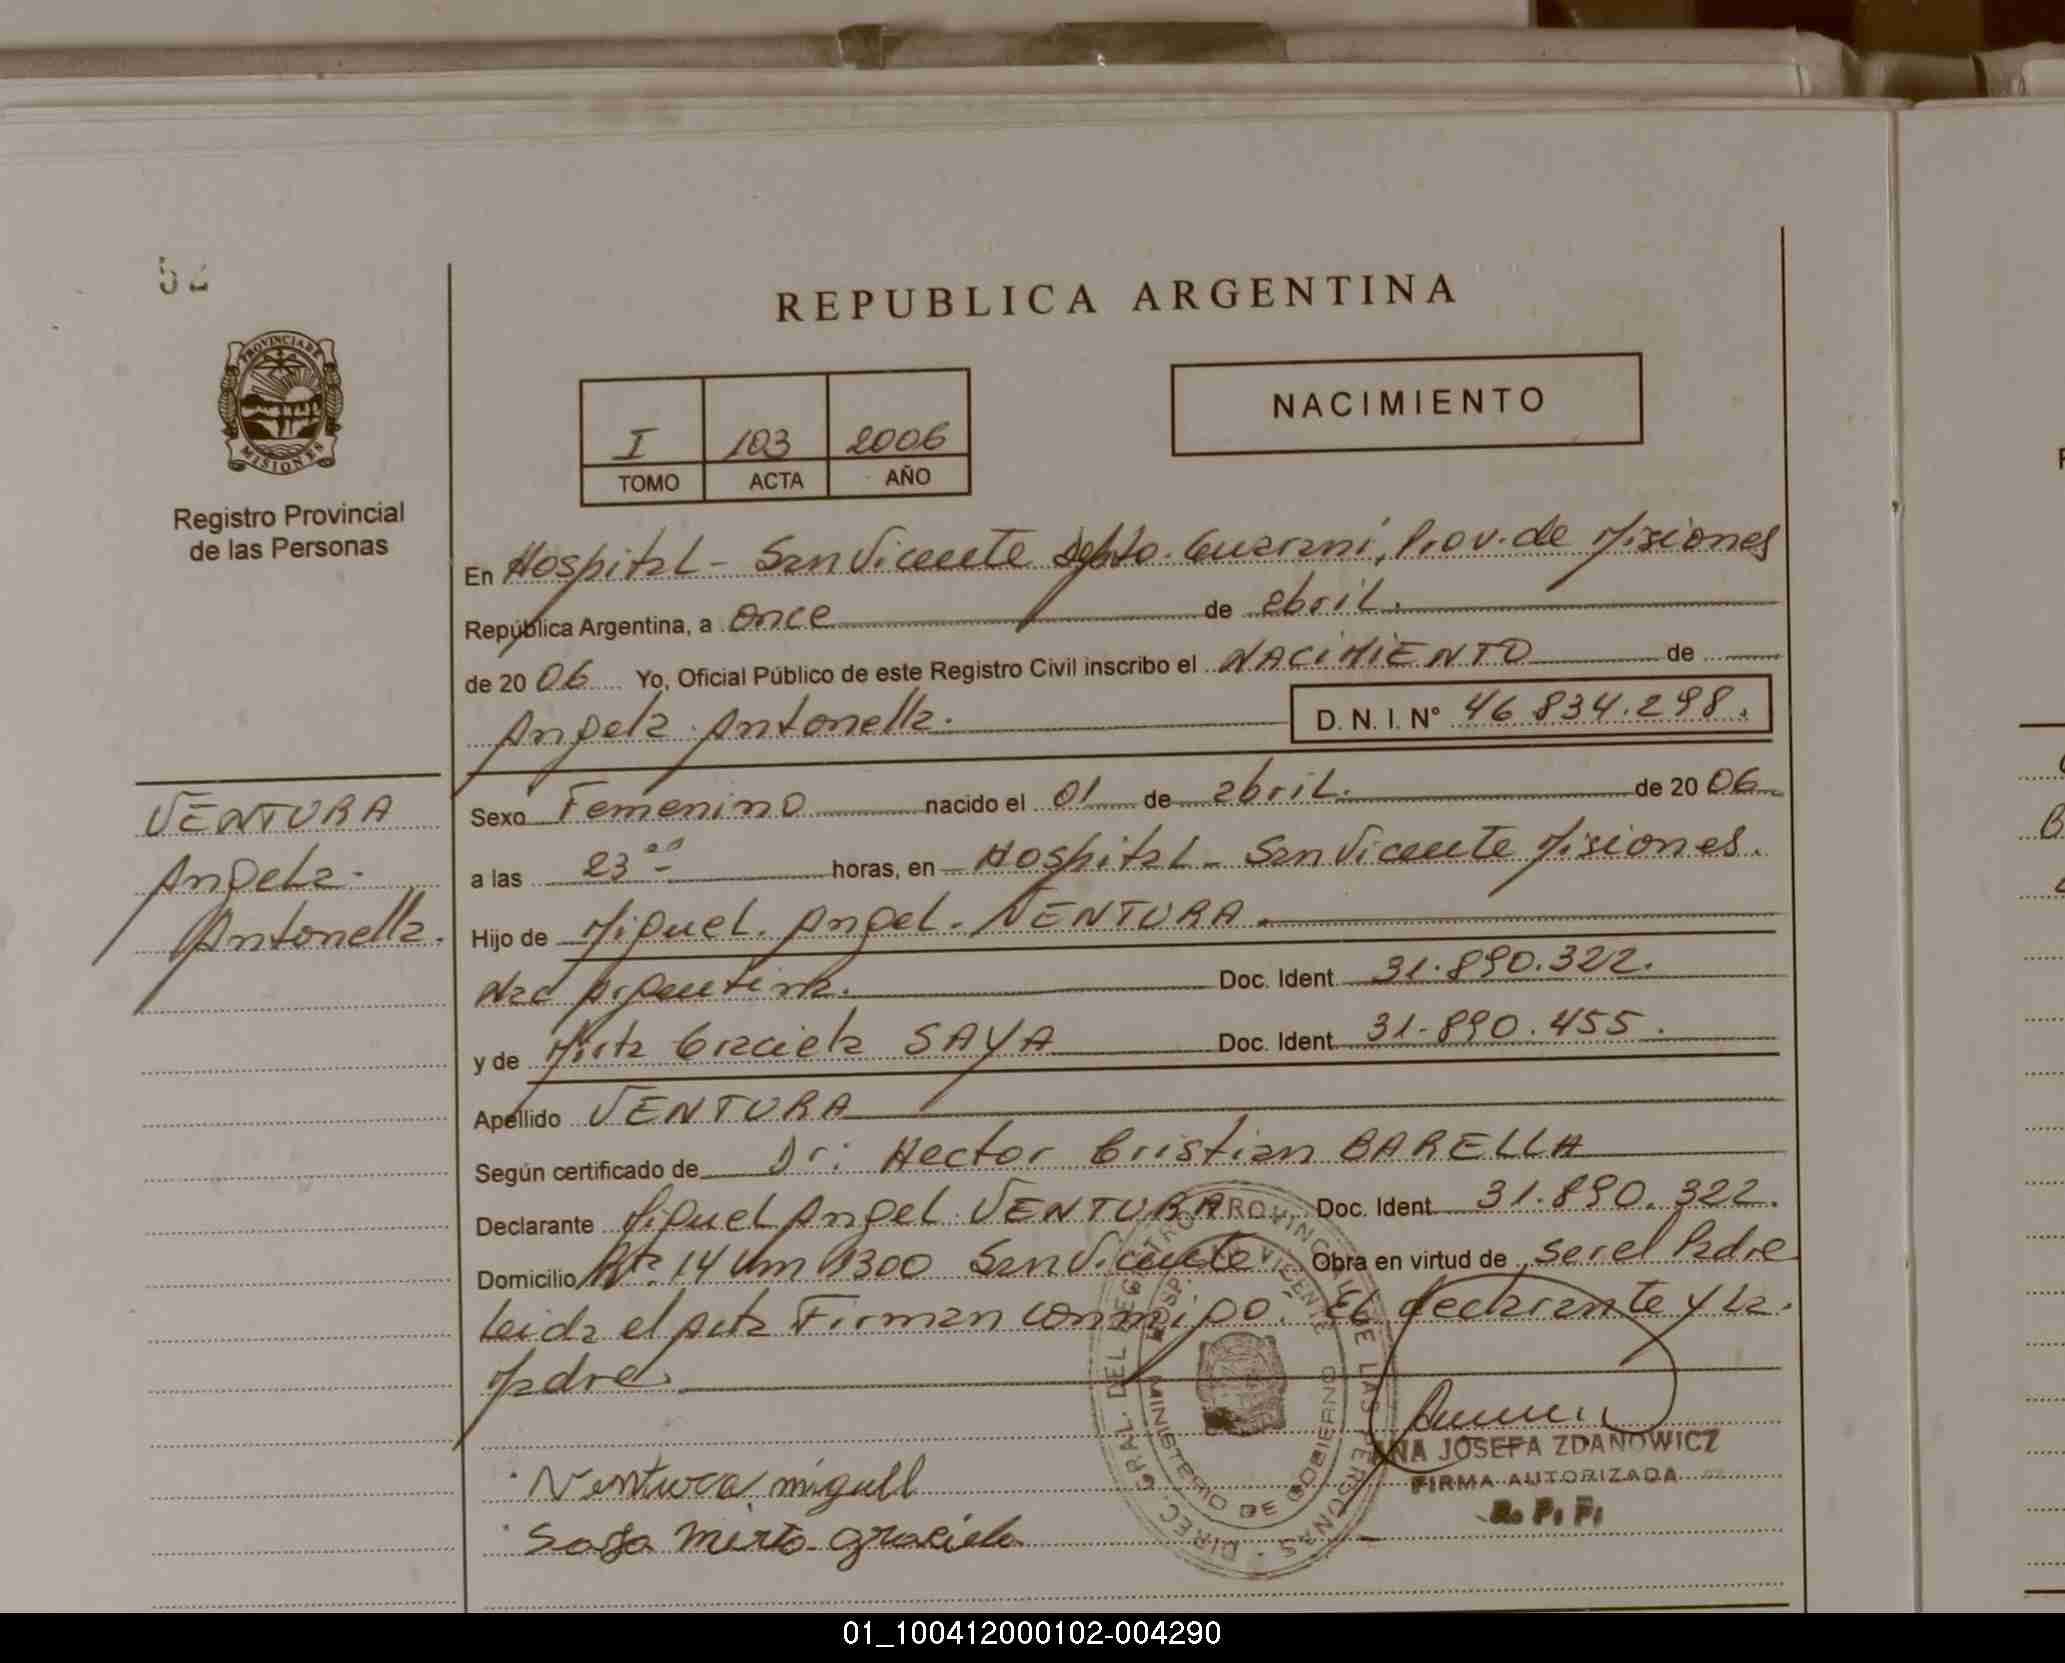 52
PROVINCIA DE
MISIONES
Registro Provincial
de las Personas
VENTURA
Angela.
Antonella.
REPUBLICA ARGENTINA
I 103 2006
TOMO ACTA AÑO
NACIMIENTO
En Hospital - San Vicente Dpto. Guarani, Prov. de Misiones
República Argentina, a once de abril.
de 2006 Yo, Oficial Público de este Registro Civil inscribo el NACIMIENTO de
Angela Antonella. D. N. I. Nº 46.834.298.
Sexo Femenino nacido el 01 de abril. de 2006
a las 23 00 horas, en Hospital - San Vicente Misiones.
Hijo de Miguel. Angel. VENTURA.
Nac Argentina. Doc. Ident 31.890.322.
y de Mirta Graciela SAYA Doc. Ident 31.890.455.
Apellido VENTURA
Según certificado de Dr: Hector Cristian BARELLA
Declarante Miguel Angel VENTURA Doc. Ident 31.890.322.
Domicilio Rta. 14 Km 1300 San Vicente Obra en virtud de ser el Padre
Leida el acta Firman conmigo: El declarante y La.
Madre.
DIREC. GRAL. DEL REGISTRO PROVINCIAL DE LAS PERSONAS
HOSP. SAN VICENTE
MINISTERIO DE GOBIERNO
ANA JOSEFA ZDANOWICZ
FIRMA AUTORIZADA
R. P. P.
Ventura miguel
Saya Mirta graciela
01_100412000102-004290